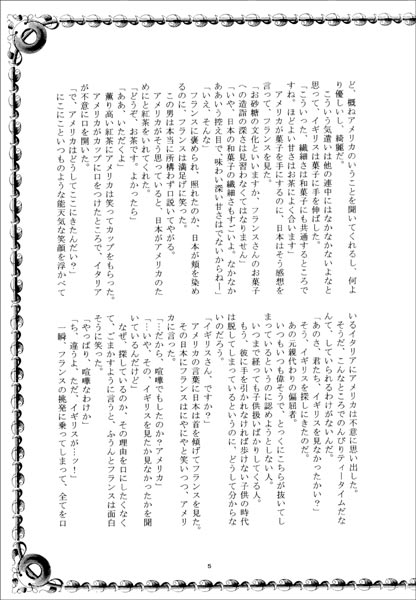 ど、概ねアメリカのいうことを聞いてくれるし、何よ
り優しいし、綺麗だ。
こういう気遣いは他の連中にはなかなかないよなと
思って、イギリスは菓子に手を伸ばした。
「こういった、繊細さは和菓子にも共通するところで
すね。ほどよい甘さはお茶によく合います」
アメリカが菓子を手にするのに、日本はそう感想を
言って、フランスを見た。
「お砂糖の文化といいますか、フランスさんのお菓子
への造詣の深さは見習わなくてはなりません」
「いや、日本の和菓子の繊細さもすごいよ。なかなか
ああいう控え目で、味わい深い甘さはでないからねー」
「いえ、そんな」
フランスに褒められ、照れたのか、日本が頬を染め
るのに、フランスは満ぱげに笑った。
この男は本当に所構わず口説いてやがる。
アメリカがそう思っていると、日本がアメリカのた
めにと紅茶をいれてくれた。
「どうぞ、お茶です。よかったら」
「ああ、いただくよ」
薫り高い紅茶にアメリカは笑ってカップをもらった。
アメリカがカップに口をつけたところで、イタリア
が不意に口を開いた。
「で、アメリカはどうしてここにきたんだい?」
にこにこといつものような能天気な笑顔を浮かべて
いるイタリアにアメリカは不意に思い出した。
そうだ、こんなところでのんびりティータイムだな
んて、していられるわけがないんだ。
「あのさ、君たち、イギリスを見なかったかい?」
そう、イギリスを探しにきたのだ。
あの元親代わりの偏屈者。
いつもいつも偉そうで、とっくにこちらが抜いてし
まっているというのに認めようとしない人。
いつまで経っても子供扱いばかりしてくる人。
もう、彼に手を引かれなければ歩けない子供の時代
は脱してしまっているというのに、どうして分からな
いんだろう。
「イギリスさん、ですか?」
アメリカの言葉に日本は首を傾げてフランスを見た。
その日本にフランスはにやにやと笑いつつ、アメリ
カに言った。
「…だから、喧嘩でもしたのか?アメリカ」
「…いや、その、イギリスを見たか見なかったかを聞
いているんだけど」
なぜ、探しているのか、その理由を口にしたくなく
て、ごまかすように言うと、ふうんとフランスは面白
そうに笑った。
「やっぱり、喧嘩なわけか」
「ち、違うよ。ただ、イギリスが…ッ!」
一瞬、フランスの挑発に乗ってしまって、全てを口
5